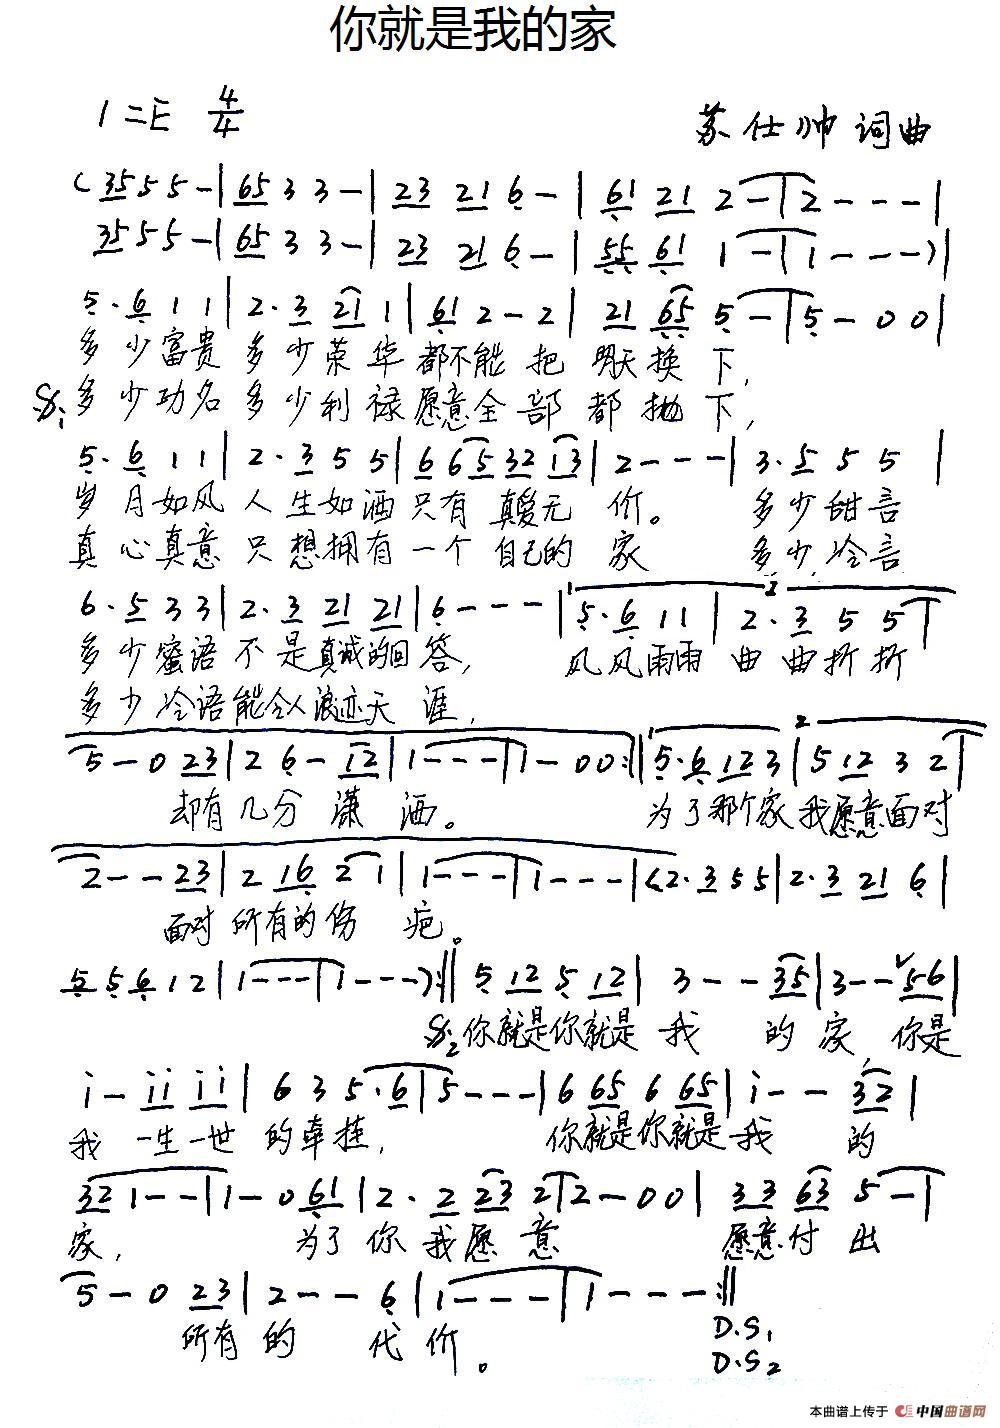 你就是我的家
1=E 4/4 苏仕帅 词曲
(35 5 5 -|65 3 3 -|23 21 6 -|61 21 2 -|2 - - -|
35 5 5 -|65 3 3 -|23 21 6 -|55 61 1 -|1 - - -)|
5· 6 1 1|2· 3 21 1|61 2 - 2|21 65 5 -|5 - 0 0|
多少富贵多少荣华都不能把明天换下,
𝄋1 多少功名多少利禄愿意全部都抛下,
5· 6 1 1|2· 3 5 5|6 65 32 13|2 - - -|3· 5 5 5|
岁月如风人生如洒只有真爱无价。 多少甜言
真心真意只想拥有一个自己的家 多少冷言
6· 5 3 3|2· 3 21 21|6 - - -|1 5· 6 1 1|2 2· 3 5 5|
多少蜜语不是真诚的回答, 风风雨雨曲曲折折
多少冷语能令人浪迹天涯,
5 - 0 23|2 6 - 12|1 - - -|1 - 0 0:‖1 5· 6 12 3|2 5 12 3 2|
却有几分潇洒。 为了那个家我愿意面对
2 - - 23|2 16 2 1|1 - - -|1 - - -|(2· 3 5 5|2· 3 21 6|
面对所有的伤疤。
5 5 6 1 2|1 - - -|1 - - -):‖5 12 5 12|3 - - 35|3 - - 56|
𝄋2 你就是你就是我的家,你是
i - ii ii|6 3 5· 6|5 - - -|6 65 6 65|i - - 32|
我一生一世的牵挂, 你就是你就是我的
32 1 - -|1 - 0 61|2· 2 23 2|2 - 0 0|33 63 5 -|
家, 为了你我愿意 愿意付出
5 - 0 23|2 - - 6|1 - - -|1 - - -:‖
所有的代价。
D.S1
D.S2
本曲谱上传于 中国曲谱网